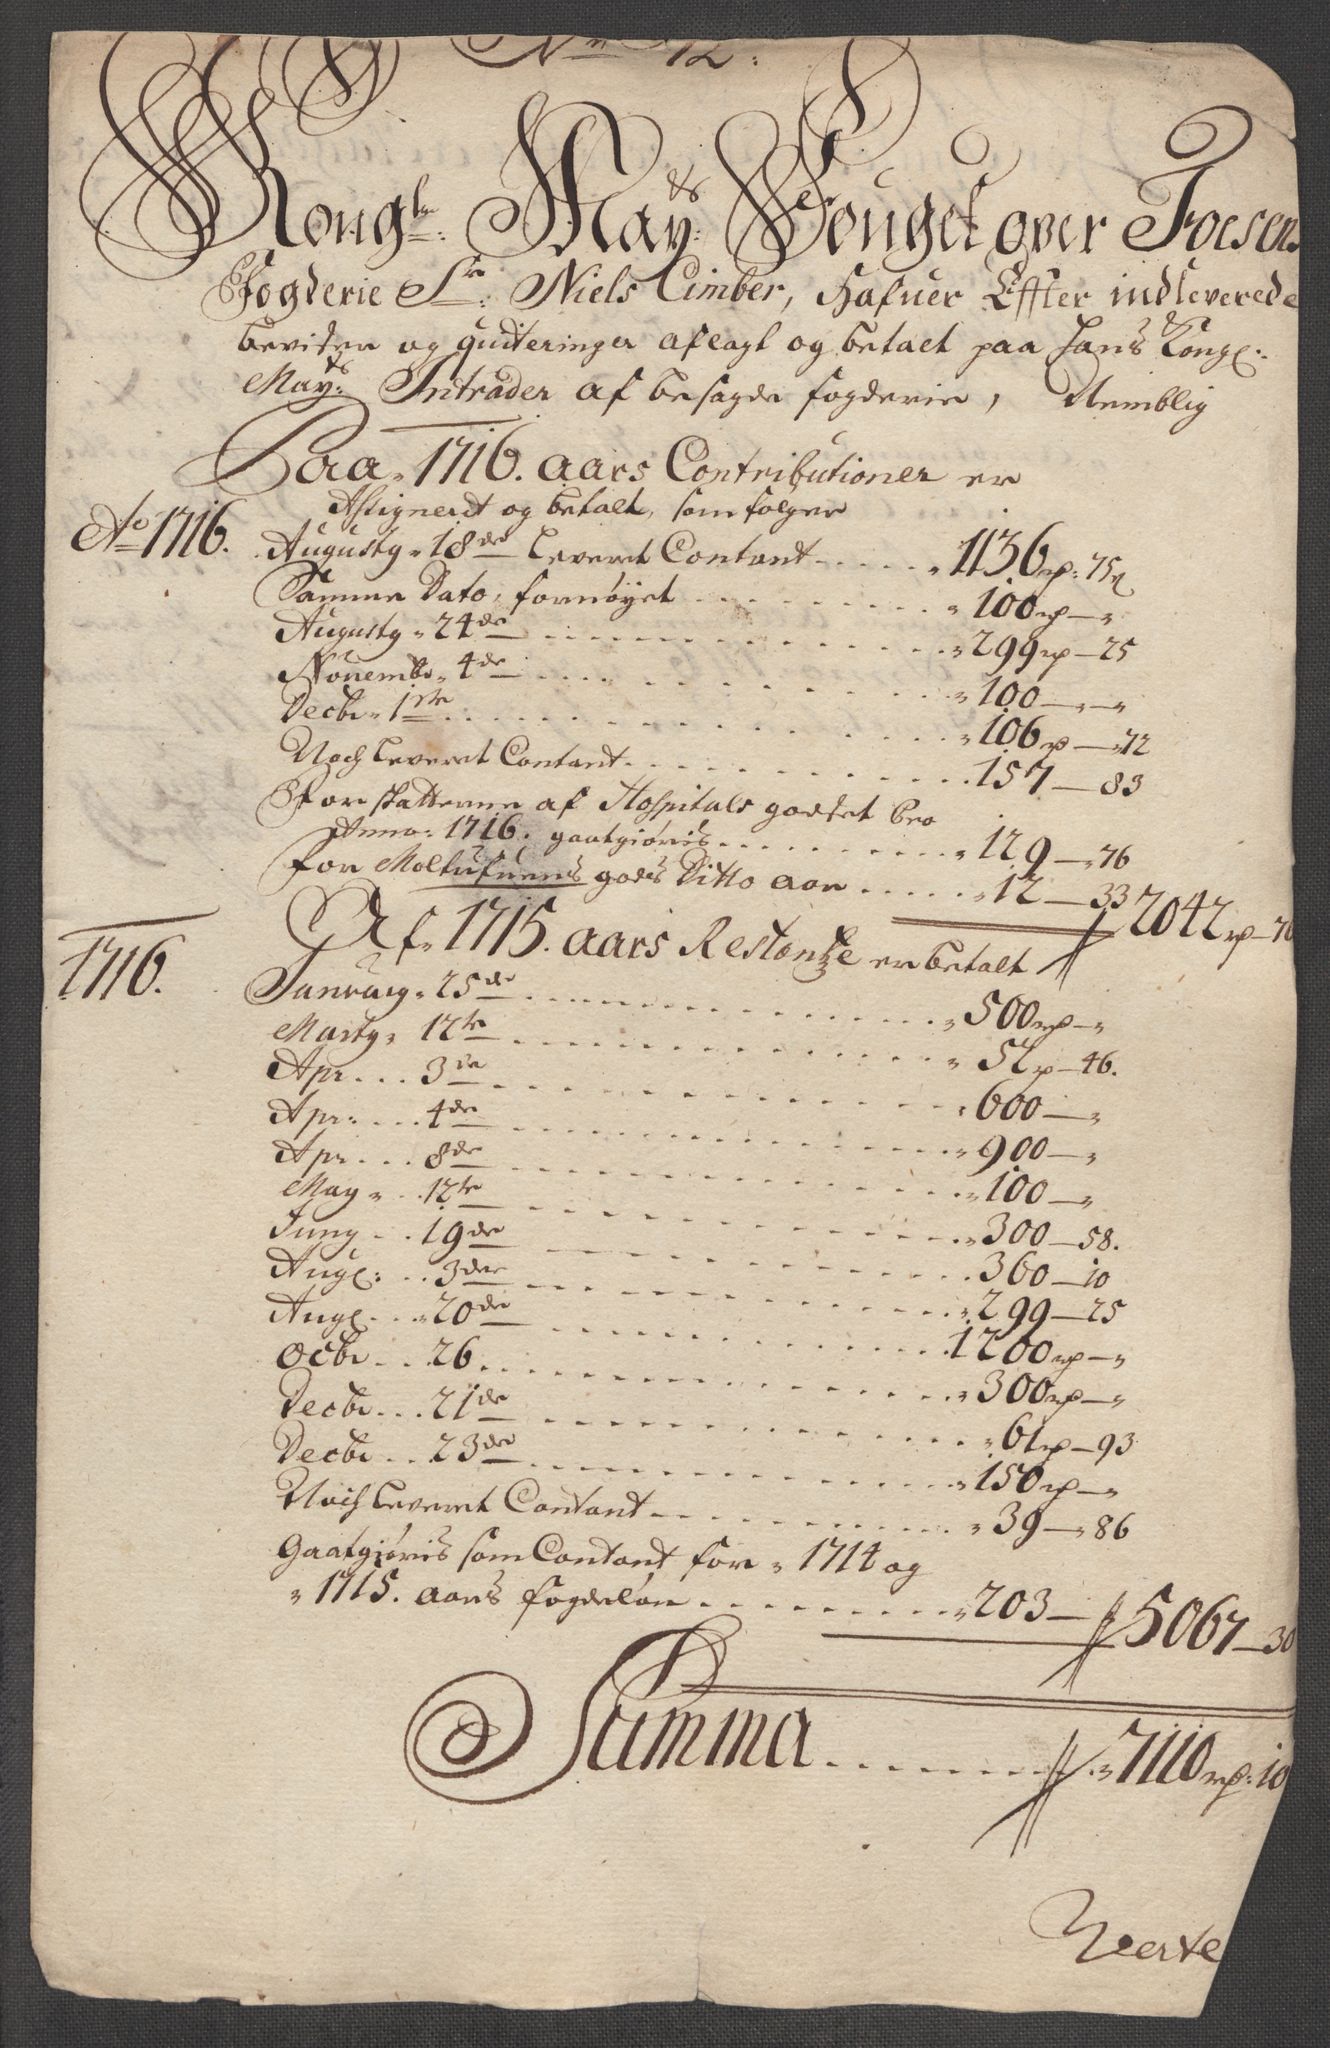 No 12:
Kongl: May:ts Fouget over Foesens
Fogderie Sr: Niels Cimber, Hafuer Effter indleverede
beviiser og quiteringer aflagt og betalt paa Hans Kongl:
May:ts Intrader af besagde fogderie, Nemblig
Paa 1716. aars Contributioner er
Assignerit og betalt, som følger
Ao 1716. Augusty 18de Leveret Contant ..... 1136 rp: 75 ß
Samme Dato, fornøyet ..... 100 rp — „
Augusty 24de ..... 299 rp — 25
Novembr 4de ..... 100 — „ — „
Decbr 1ste ..... 106 rp — 72
Noch Leveret Contant ..... 157 — 83
For skatterne af Hospitals godset pro
Anno: 1716. gootgiøris ..... 129 — 76
for gods Ditto aar ..... 12 — 33 // 2042 rp — 76
1716. Af 1715. aars Restantze er betalt
Januarij 25de ..... 500 rp — „
Marty 12te ..... 52 rp — 46.
Apr ... 3de ..... 600 — „
Apr: ... 4de ..... 900 — „
Apr ... 8de ..... 100 — „
May .. 12te ..... 300 — 58.
Juny .. 19de ..... 360 — 10
Aug: .. 3de ..... 299 — 25
Aug ... 20de ..... 1200 rp — „
Octbr .. 26 ..... 300 rp — „
Decbr ... 21de ..... 61 rp — 93
Decbr .. 23de ..... 150 rp — „
Noch Leveret Contant ..... 39 — 86
Gootgiøris som Contant for 1714 og
1715. aars fogedløn ..... 203 — // 5067 — 30
Summa ..... // 7110 rp: 10
Verte